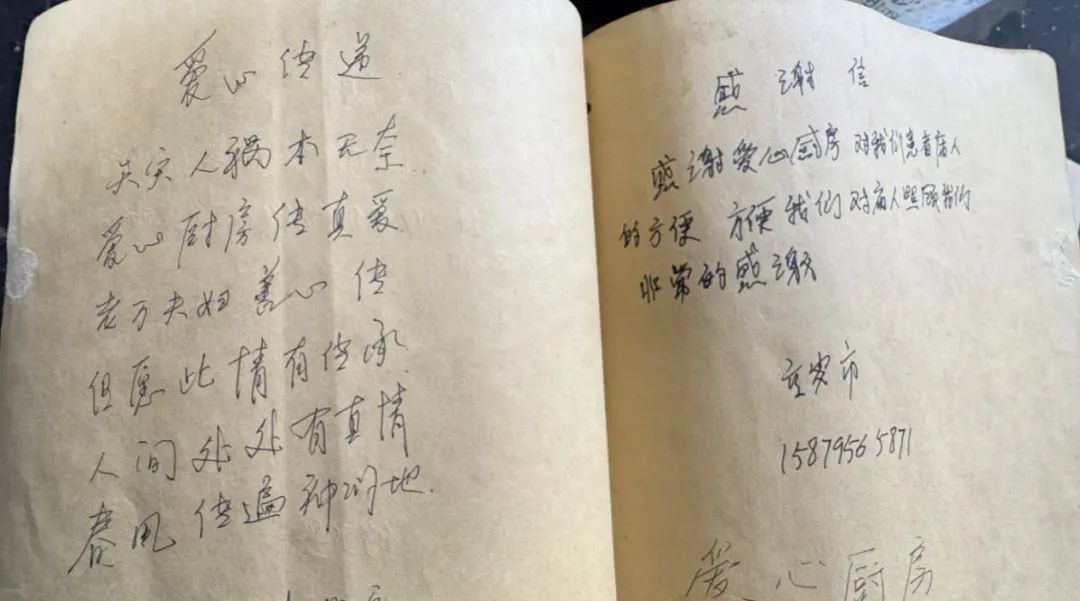 爱心传递
天灾人祸本无奈
爱心厨房传真爱
老万夫妇善心传
但愿此情有传承
人间处处有真情
春风传遍神州地.
感谢信
感谢爱心厨房对我们患者病人
的方便 方便我们对病人照顾我们
非常的感谢
市
15879565871
爱心厨房